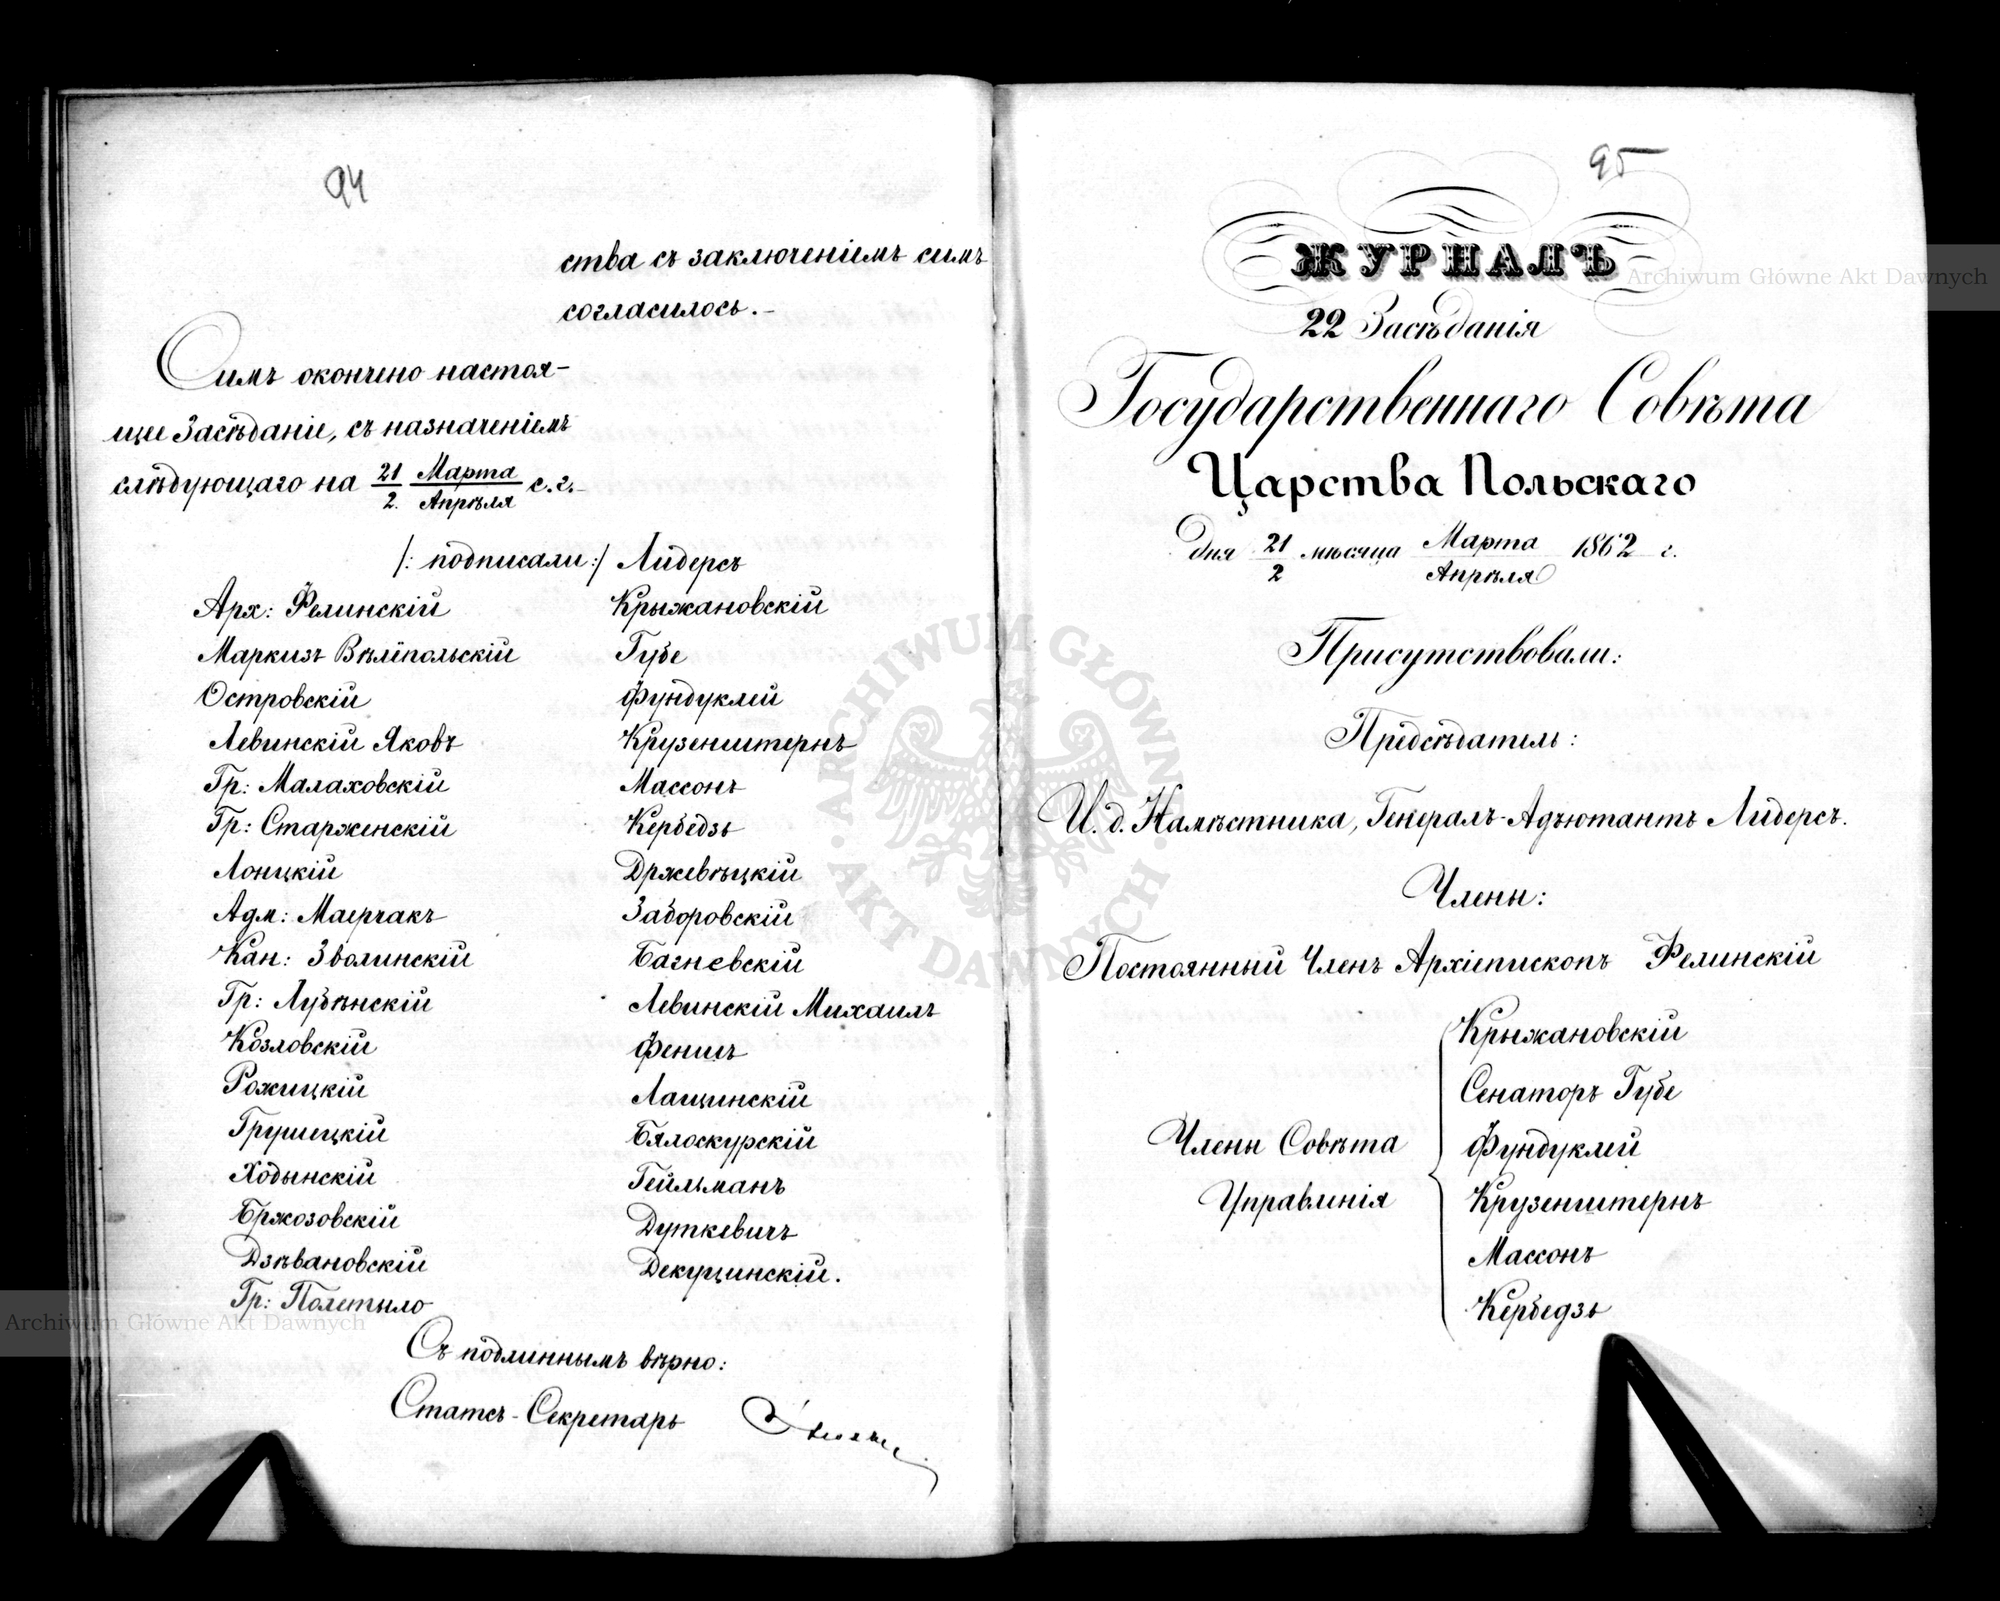 94
ства съ заключеніемъ симъ
согласилось.-
Симъ окончено настоя-
щее Засѣданіе, съ назначеніемъ
слѣдующаго на 21/2. Марта/Апрѣля с.г.-
/: подписали:/ Лидерсъ
Арх: Фелинскій
Маркизъ Вѣліопольскій
Островскій
Левинскій Яковъ
Гр: Малаховскій
Гр: Старженскій
Лонцкій
Адм: Маерчакъ
Кан: Зволинскій
Гр: Лубѣнскій
Козловскій
Рожицкій
Грушецкій
Ходынскій
Бржозовскій
Дзѣвановскій
Гр: Полетыло
Крыжановскій
Губе
Фундуклей
Крузенштернъ
Массонъ
Кербедзъ
Држевѣцкій
Заборовскій
Багневскій
Левинскій Михаилъ
Феншъ
Лащинскій
Бялоскурскій
Гейльманъ
Дуткевичъ
Декуцинскій.
Съ подлиннымъ вѣрно:
Статсъ-Секретарь
95
ЖУРНАЛЪ
22 Засѣданія
Государственнаго Совѣта
Царства Польскаго
Дня 21/2 мѣсяца Марта/Апрѣля 1862 г.
Присутствовали:
Предсѣдатель:
И. д. Намѣстника, Генералъ-Адъютантъ Лидерсъ.
Члены:
Постоянный Членъ Архіепископъ Фелинскій
Члены Совѣта
Управленія
Крыжановскій
Сенаторъ Губе
Фундуклей
Крузенштернъ
Массонъ
Кербедзъ
Archiwum Główne Akt Dawnych
Archiwum Główne Akt Dawnych
ARCHIWUM GŁÓWNE · AKT DAWNYCH ·